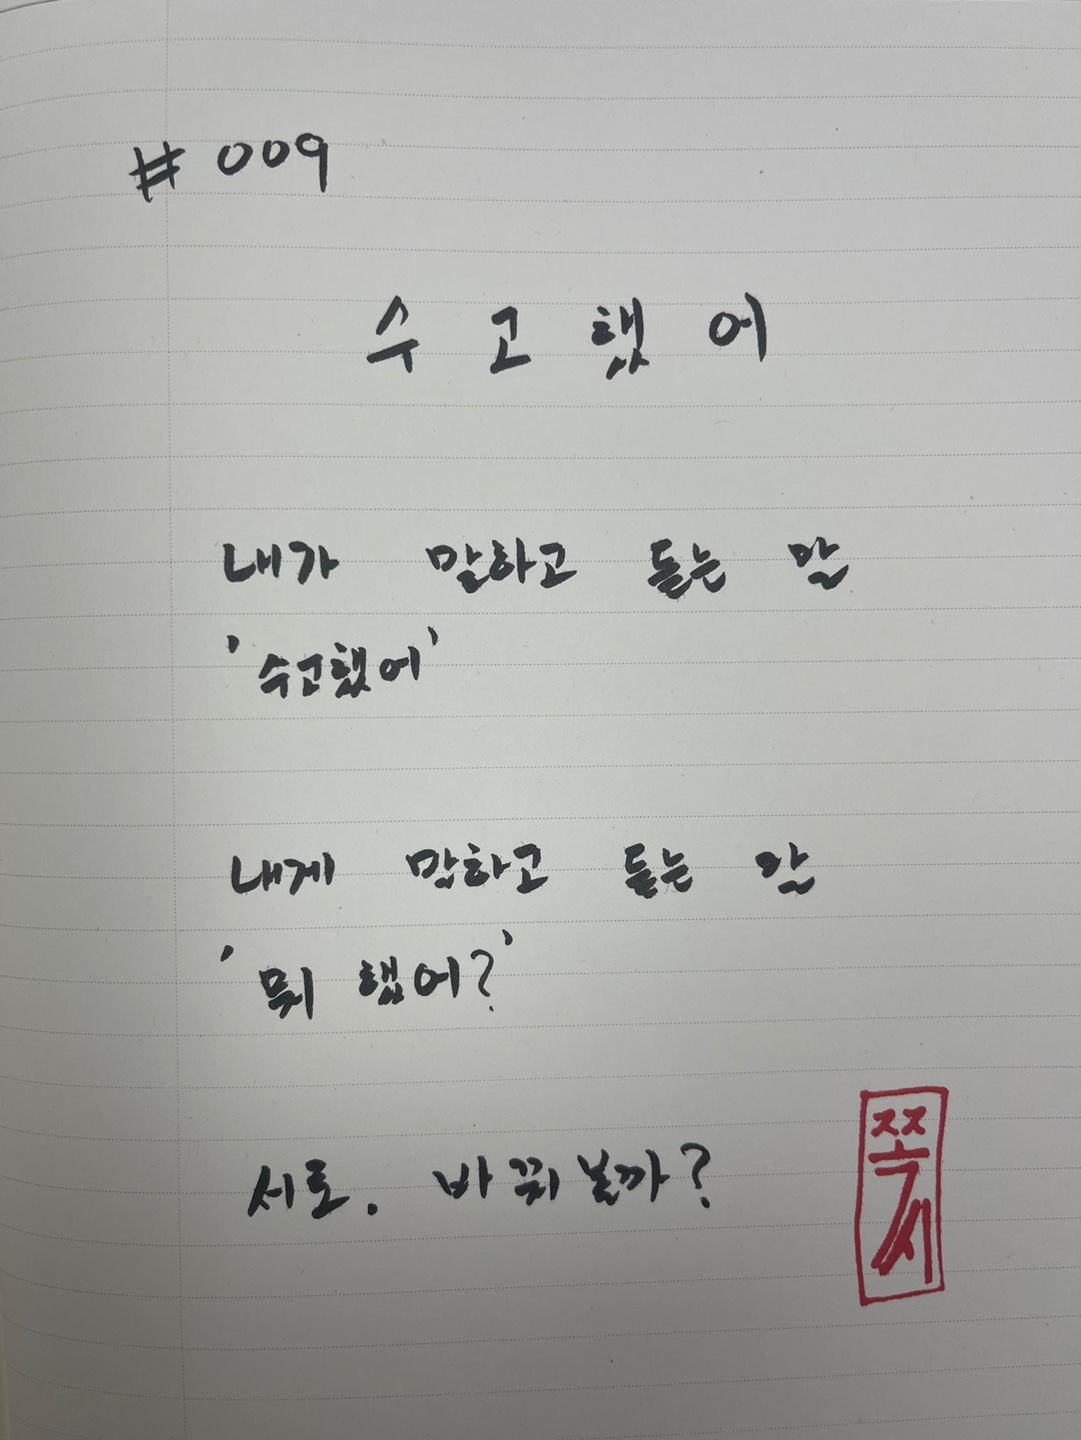 #009
수고했어
내가 말하고 듣는 말
'수고했어'
내게 말하고 듣는 말
'뭐 했어?'
서로. 바꿔볼까?
쪽시